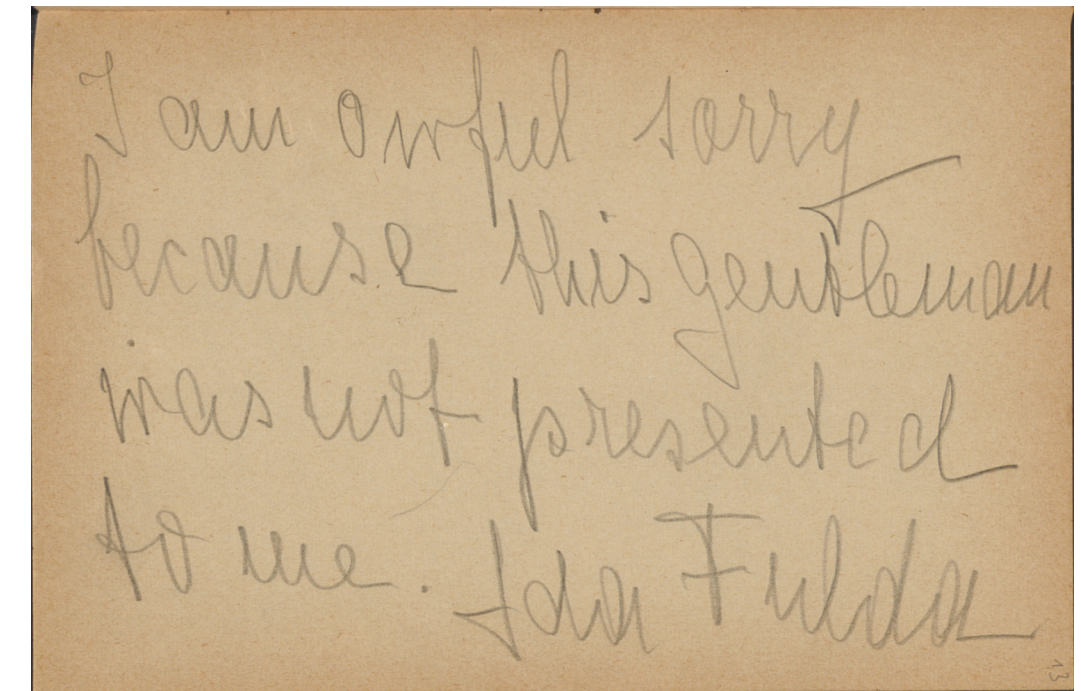 I am owful sorry
because this gentleman
was not presented
to me. Ida Fulda
13